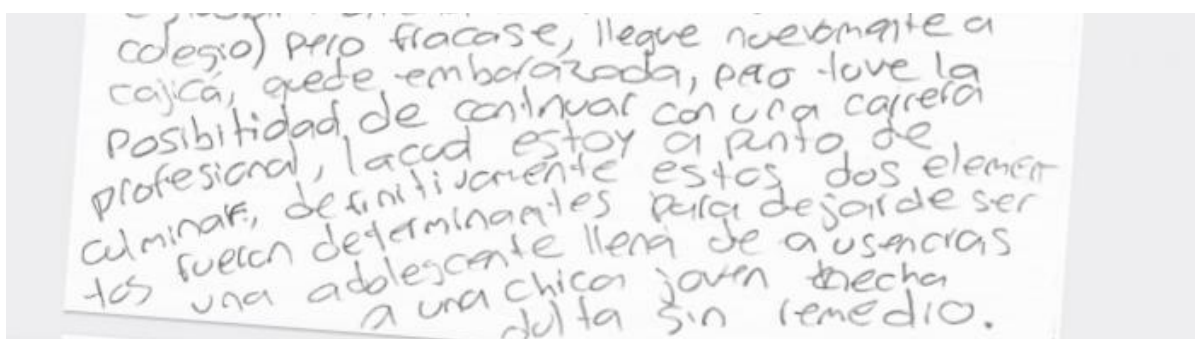 colegio) pero fracase, llegue nuevamente a
cajicá, quede embarazada, pero tuve la
posibilidad de continuar con una carrera
profesional, lacual estoy a punto de
culminar, definitivamente estos dos elemen
tos fueron determinantes para dejar de ser
una adolescente llena de ausencias
a una chica joven hecha
dulta sin remedio.